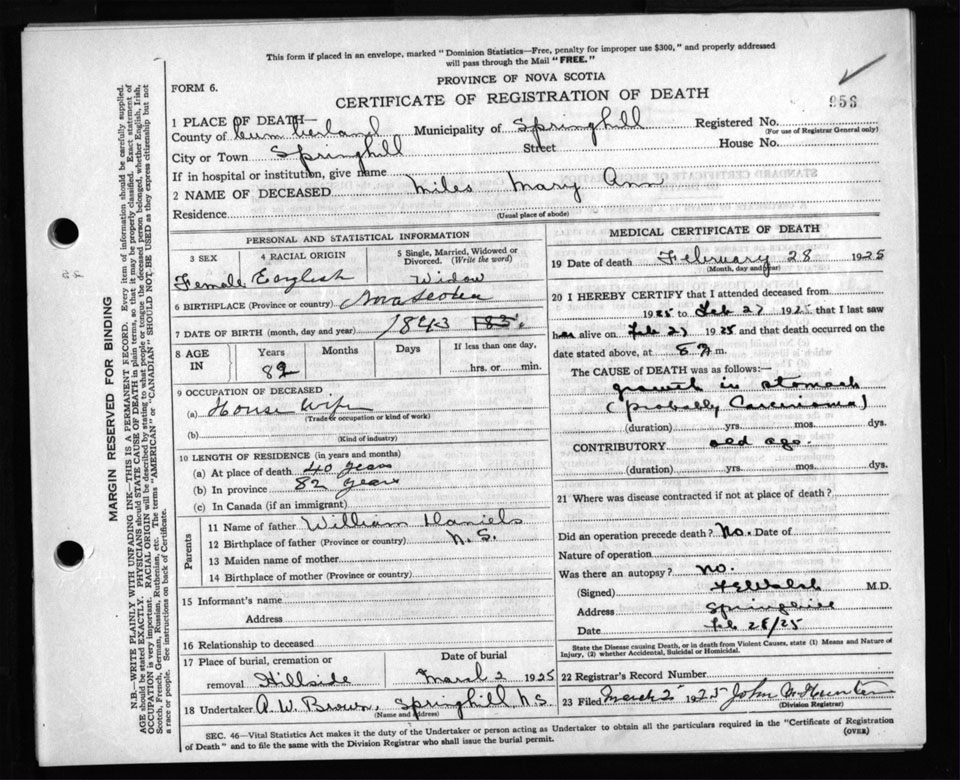 This form if placed in an envelope, marked "Dominion Statistics—Free, penalty for improper use $300," and properly addressed
will pass through the Mail "FREE."
PROVINCE OF NOVA SCOTIA
FORM 6.
CERTIFICATE OF REGISTRATION OF DEATH
956
1 PLACE OF DEATH—
County of Cumberland Municipality of Springhill Registered No.
(For use of Registrar General only)
City or Town Springhill Street House No.
If in hospital or institution, give name
2 NAME OF DECEASED Miles Mary Ann
Residence
(Usual place of abode)
PERSONAL AND STATISTICAL INFORMATION
3 SEX 4 RACIAL ORIGIN 5 Single, Married, Widowed or Divorced. (Write the word)
Female English Widow
6 BIRTHPLACE (Province or country) Nova Scotia
7 DATE OF BIRTH (month, day and year) 1843
8 AGE IN Years Months Days If less than one day,
82 hrs. or min.
9 OCCUPATION OF DECEASED
(a) House Wife
(Trade or occupation or kind of work)
(b)
(Kind of industry)
10 LENGTH OF RESIDENCE (in years and months)
(a) At place of death 40 years
(b) In province 82 years
(c) In Canada (if an immigrant)
Parents
11 Name of father William Daniels
12 Birthplace of father (Province or country) N. S.
13 Maiden name of mother
14 Birthplace of mother (Province or country)
15 Informant's name
Address
16 Relationship to deceased
17 Place of burial, cremation or Date of burial
removal Hillside March 2 1925
18 Undertaker A. W. Brown, Springhill, N.S.
(Name and address)
MEDICAL CERTIFICATE OF DEATH
19 Date of death February 28 1925
(Month, day and year)
20 I HEREBY CERTIFY that I attended deceased from
1925 to Feb 27 1925, that I last saw
h alive on Feb 27 1925 and that death occurred on the
date stated above, at m.
The CAUSE of DEATH was as follows:—
growth in stomach
(probably Carcinoma)
(duration) yrs. mos. dys.
CONTRIBUTORY old age.
(duration) yrs. mos. dys.
21 Where was disease contracted if not at place of death?
Did an operation precede death? No. Date of
Nature of operation
Was there an autopsy? No.
(Signed) Walsh M.D.
Address Springhill
Date Feb 28/25
State the Disease causing Death, or in death from Violent Causes, state (1) Means and Nature of
Injury, (2) whether Accidental, Suicidal or Homicidal.
22 Registrar's Record Number
23 Filed March 2 1925 John
(Division Registrar)
SEC. 46—Vital Statistics Act makes it the duty of the Undertaker or person acting as Undertaker to obtain all the particulars required in the "Certificate of Registration
of Death" and to file the same with the Division Registrar who shall issue the burial permit.
(OVER)
MARGIN RESERVED FOR BINDING
N.B.—WRITE PLAINLY WITH UNFADING INK—THIS IS A PERMANENT RECORD. Every item of information should be carefully supplied.
AGE should be stated EXACTLY. PHYSICIANS should STATE CAUSE OF DEATH in plain terms, so that it may be properly classified. Exact statement of
OCCUPATION is very important. RACIAL ORIGIN will be described by stating to what people or tongue the deceased person belonged, whether English, Irish,
Scotch, French, German, Russian, Ruthenian, etc. The terms "AMERICAN" or "CANADIAN" SHOULD NOT BE USED as they express citizenship but not
a race or people. See instructions on back of Certificate.